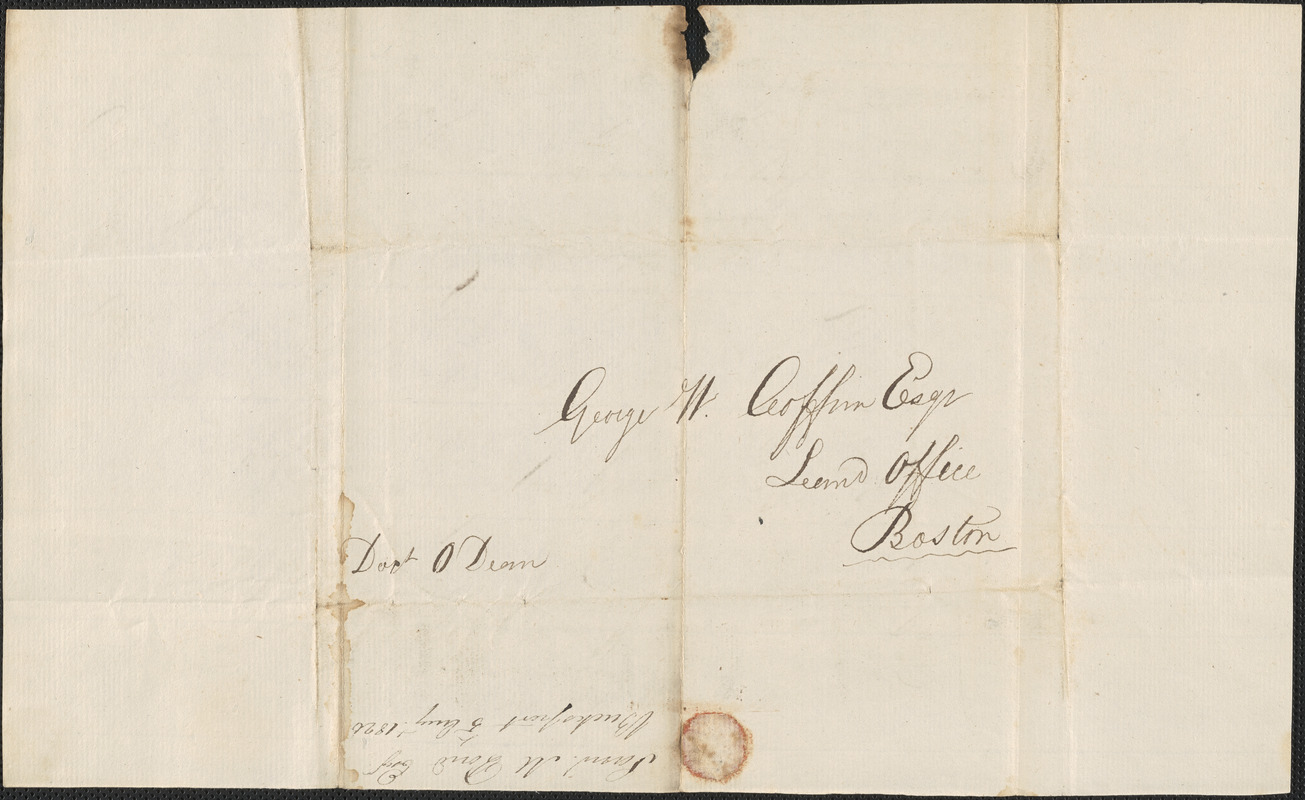 George W. Coffin Esqr
Land Office
Boston
Doct O Dean
Saml. M Pond Esqr
Bucksport 5 Augt. 1826